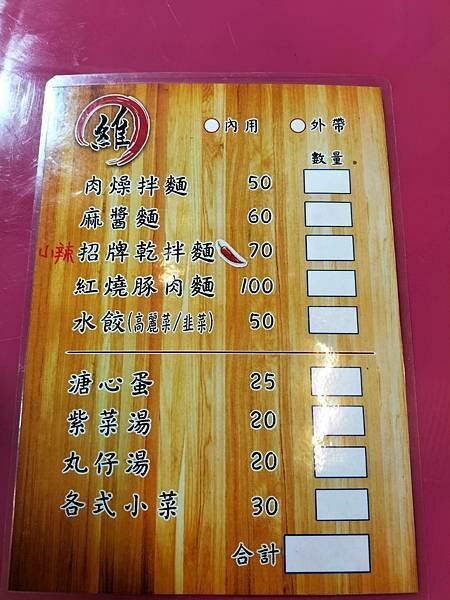 維
內用 外帶
數量
肉燥拌麵 50
麻醬麵 60
小辣 招牌乾拌麵 70
紅燒豚肉麵 100
水餃(高麗菜/韭菜) 50
溏心蛋 25
紫菜湯 20
丸仔湯 20
各式小菜 30
合計